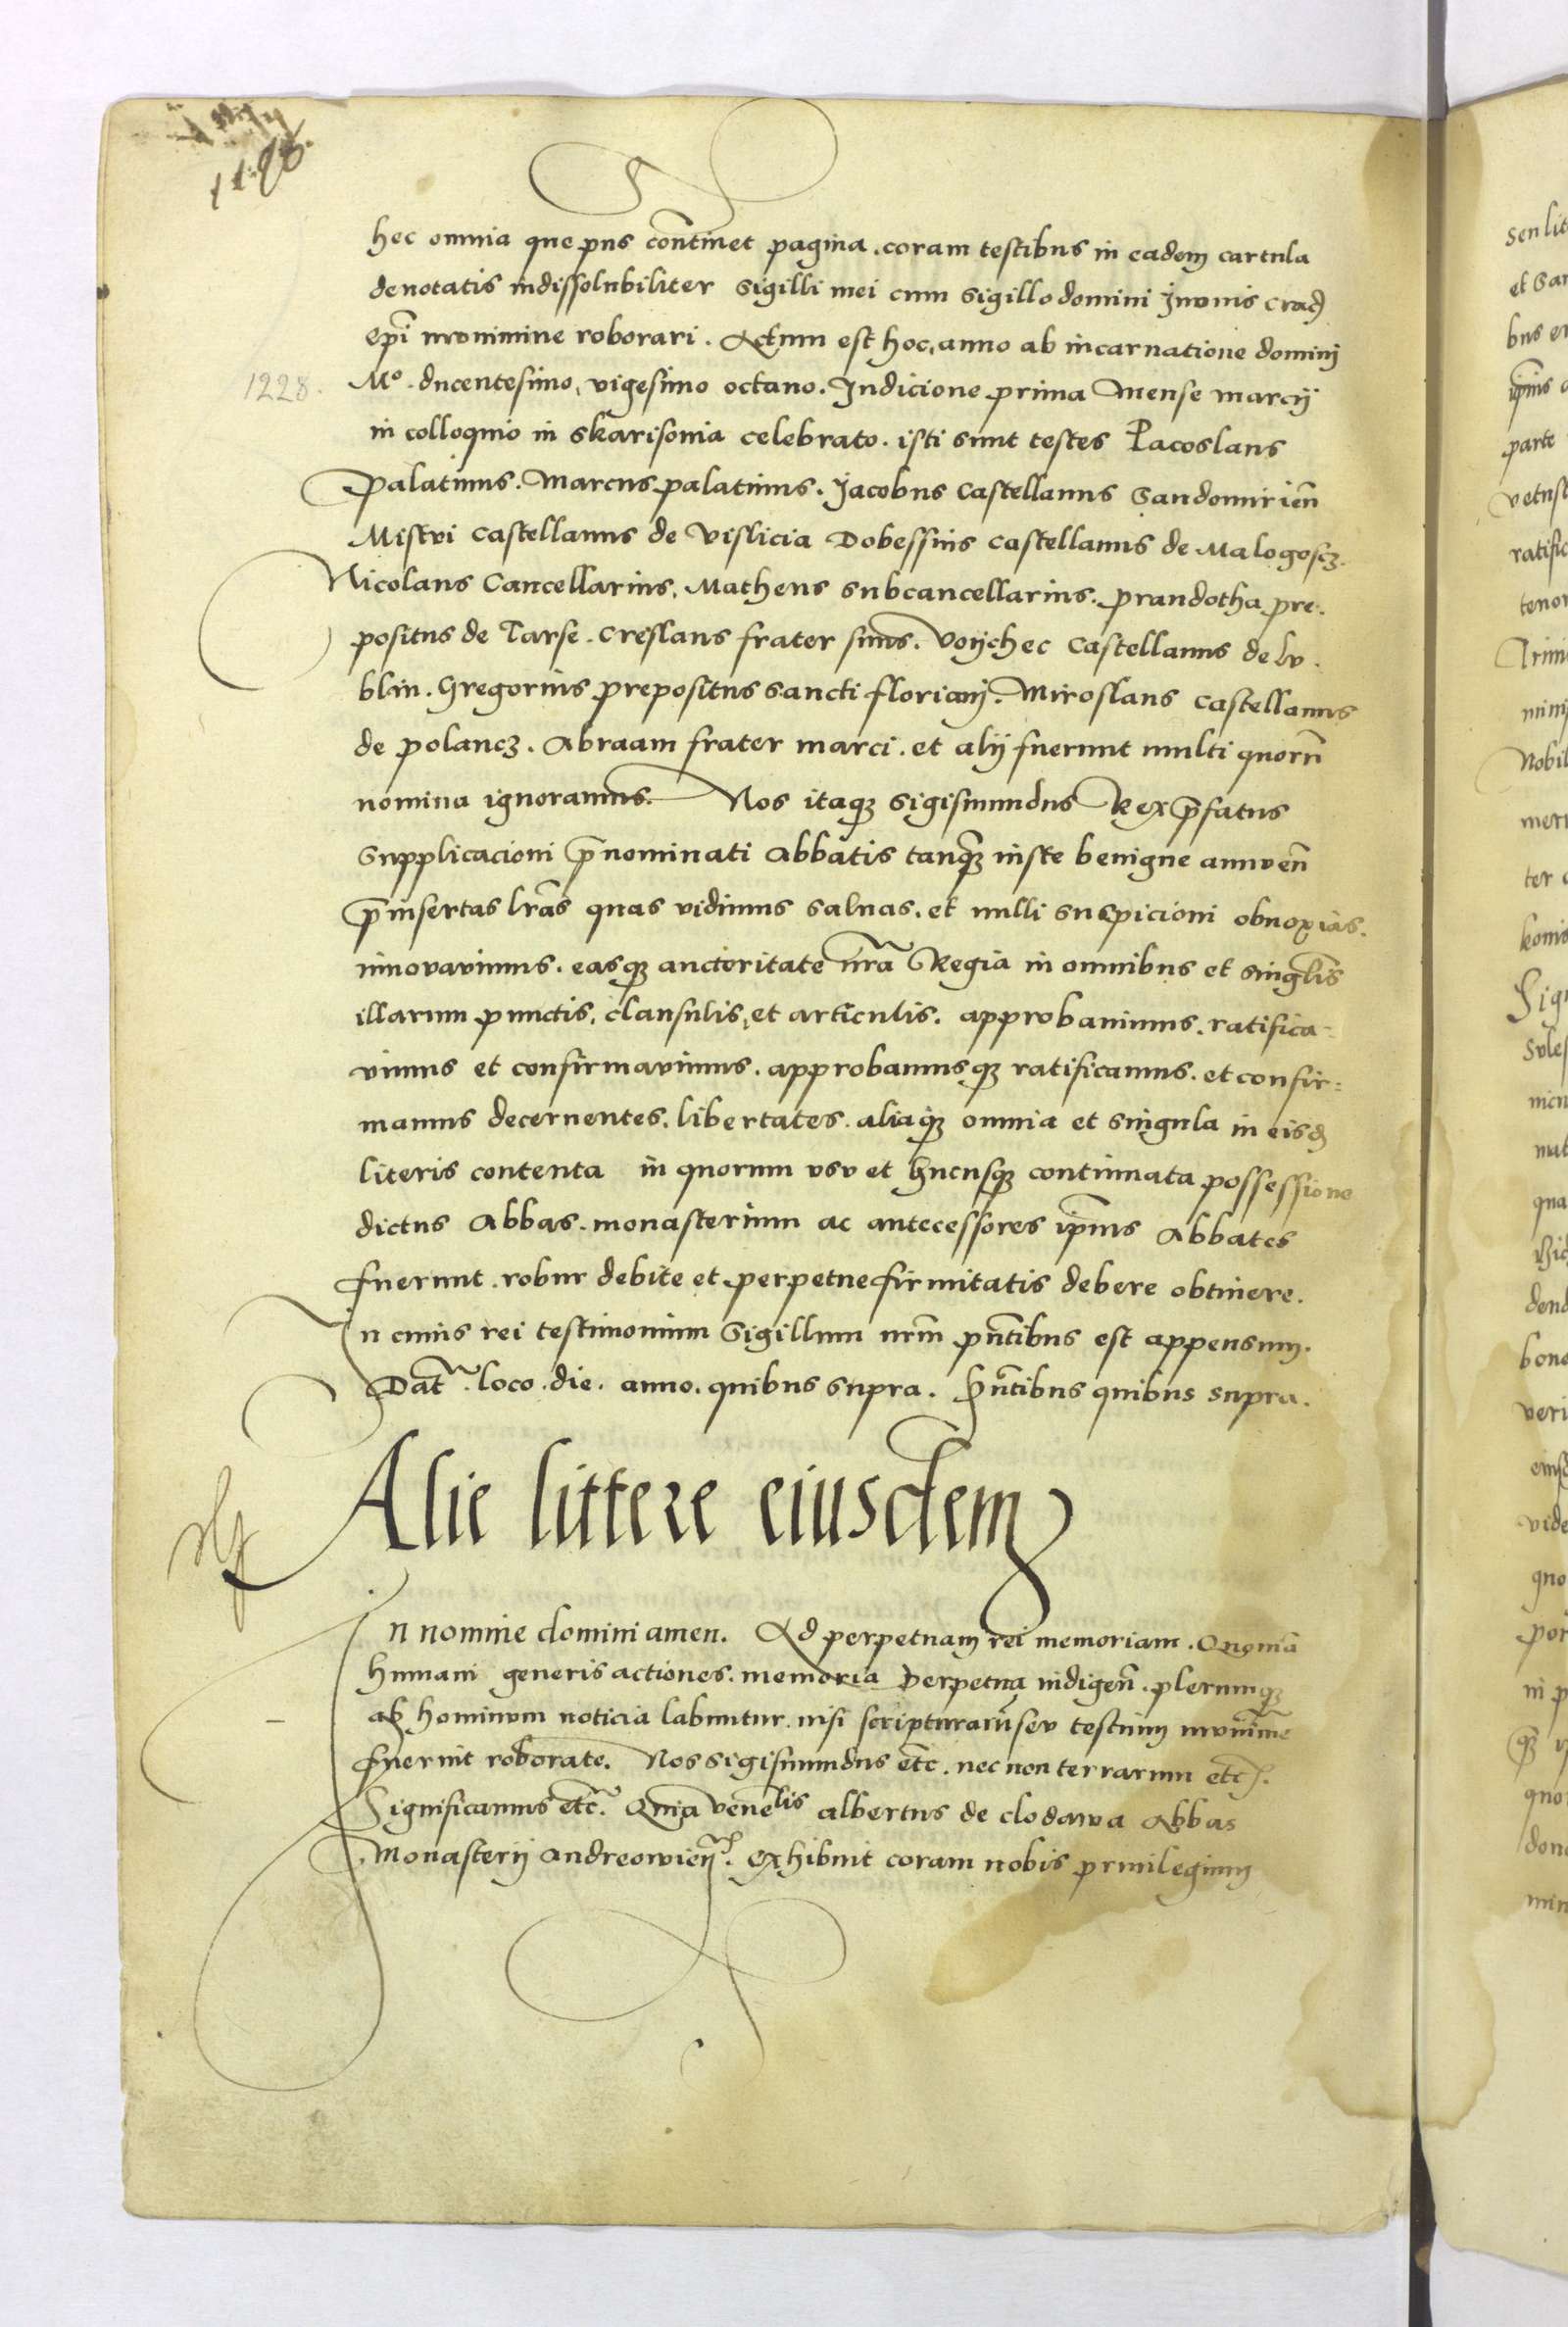 hec omnia que pns continet pagina. coram testibus in eadem cartula
denotatis indissolubiliter sigilli mei cum sigillo domini Iuonis crac
epi munimine roborari. Actum est hoc, anno ab incarnatione domini
1228.
Mo. ducentesimo, vigesimo octauo. Indicione prima Mense marcij
in colloquio in skarisouia celebrato. isti sunt testes Pacoslaus
Palatinus. Marcus palatinus. Jacobus Castellanus Sandomirien
Mistvi castellanus de vislicia Dobessius castellanus de Malogoscz.
Nicolaus Cancellarius, Matheus subcancellarius. prandotha pre.
positus de Tarse. Creslaus frater suus. Voijchec Castellanus de lu.
blin. Gregorius prepositus sancti floriani. Miroslaus castellanus
de polancz. Abraam frater marci. et alij fuerunt multi quorum
nomina ignoramus. Nos itaque Sigismundus Rex prefatus
Supplicacioni prenominati Abbatis tanquam iuste benigne annuen
preinsertas lras quas vidimus saluas. et nulli suspicioni obnoxias.
innovavimus. easque auctoritate nra Regia in omnibus et singlis
illarum punctis, clausulis, et articulis. approbauimus. ratifica=
vimus et confirmavimus. approbamusque ratificamus. et confir=
mamus decernentes, libertates. aliaque omnia et singula in eisd
literis contenta in quorum vsu et hucusque continuata possessione
dictus Abbas. monasterium ac antecessores ipsius Abbates
fuerunt. robur debite et perpetue firmitatis debere obtinere.
In cuius rei testimonium Sigillum nrm pntibus est appensum.
Dat. loco. die. anno. quibus supra. pntibus quibus supra.
Alie littere eiusdem
In nomine domini amen. Ad perpetuam rei memoriam. Quoniam
humani generis actiones. memoria perpetua indigen. plerumque
ab hominum noticia labuntur. nisi scripturarum seu testium munimine
fuerint roborate. Nos Sigismundus etc. nec non terrarum etc.
Significamus etc. Quia venelis albertus de clodawa Abbas
Monasterij andreowien. exhibuit coram nobis priuilegium